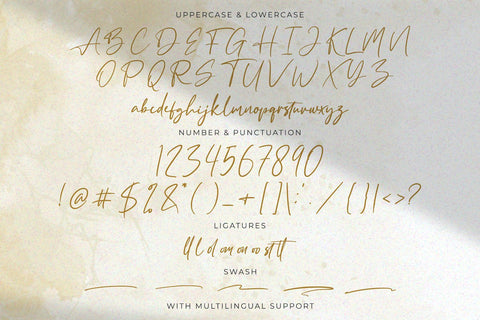 UPPERCASE & LOWERCASE
ABCDEFGHIJKLMN
OPQRSTUVWXYZ
abcdefghijklmnopqrstuvwxyz
NUMBER & PUNCTUATION
1234567890
!@#$%&*()_+[]\:;./{}|<>?
LIGATURES
SWASH
WITH MULTILINGUAL SUPPORT